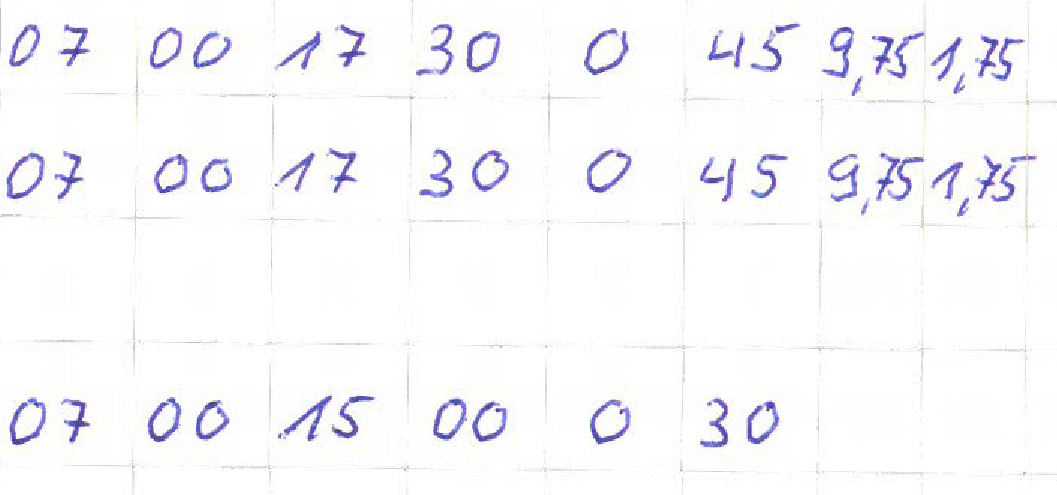 07 00 17 30 0 45 9,75 1,75
07 00 17 30 0 45 9,75 1,75
07 00 15 00 0 30